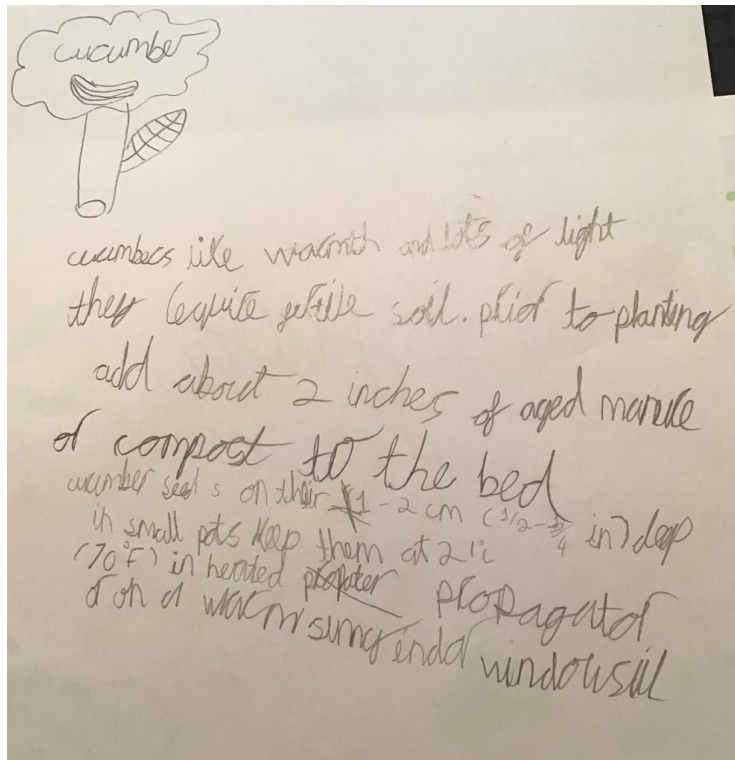 cucumber
cucumbers like warmth and lots of light
they require fertile soil. prior to planting
add about 2 inches of aged manure
or compost to the bed
cucumber seed s on their 1-2 cm (1/2-3/4 in) deep
in small pots keep them at 21°c
(70°F) in heated propagator
or on a warm sunny windowsill